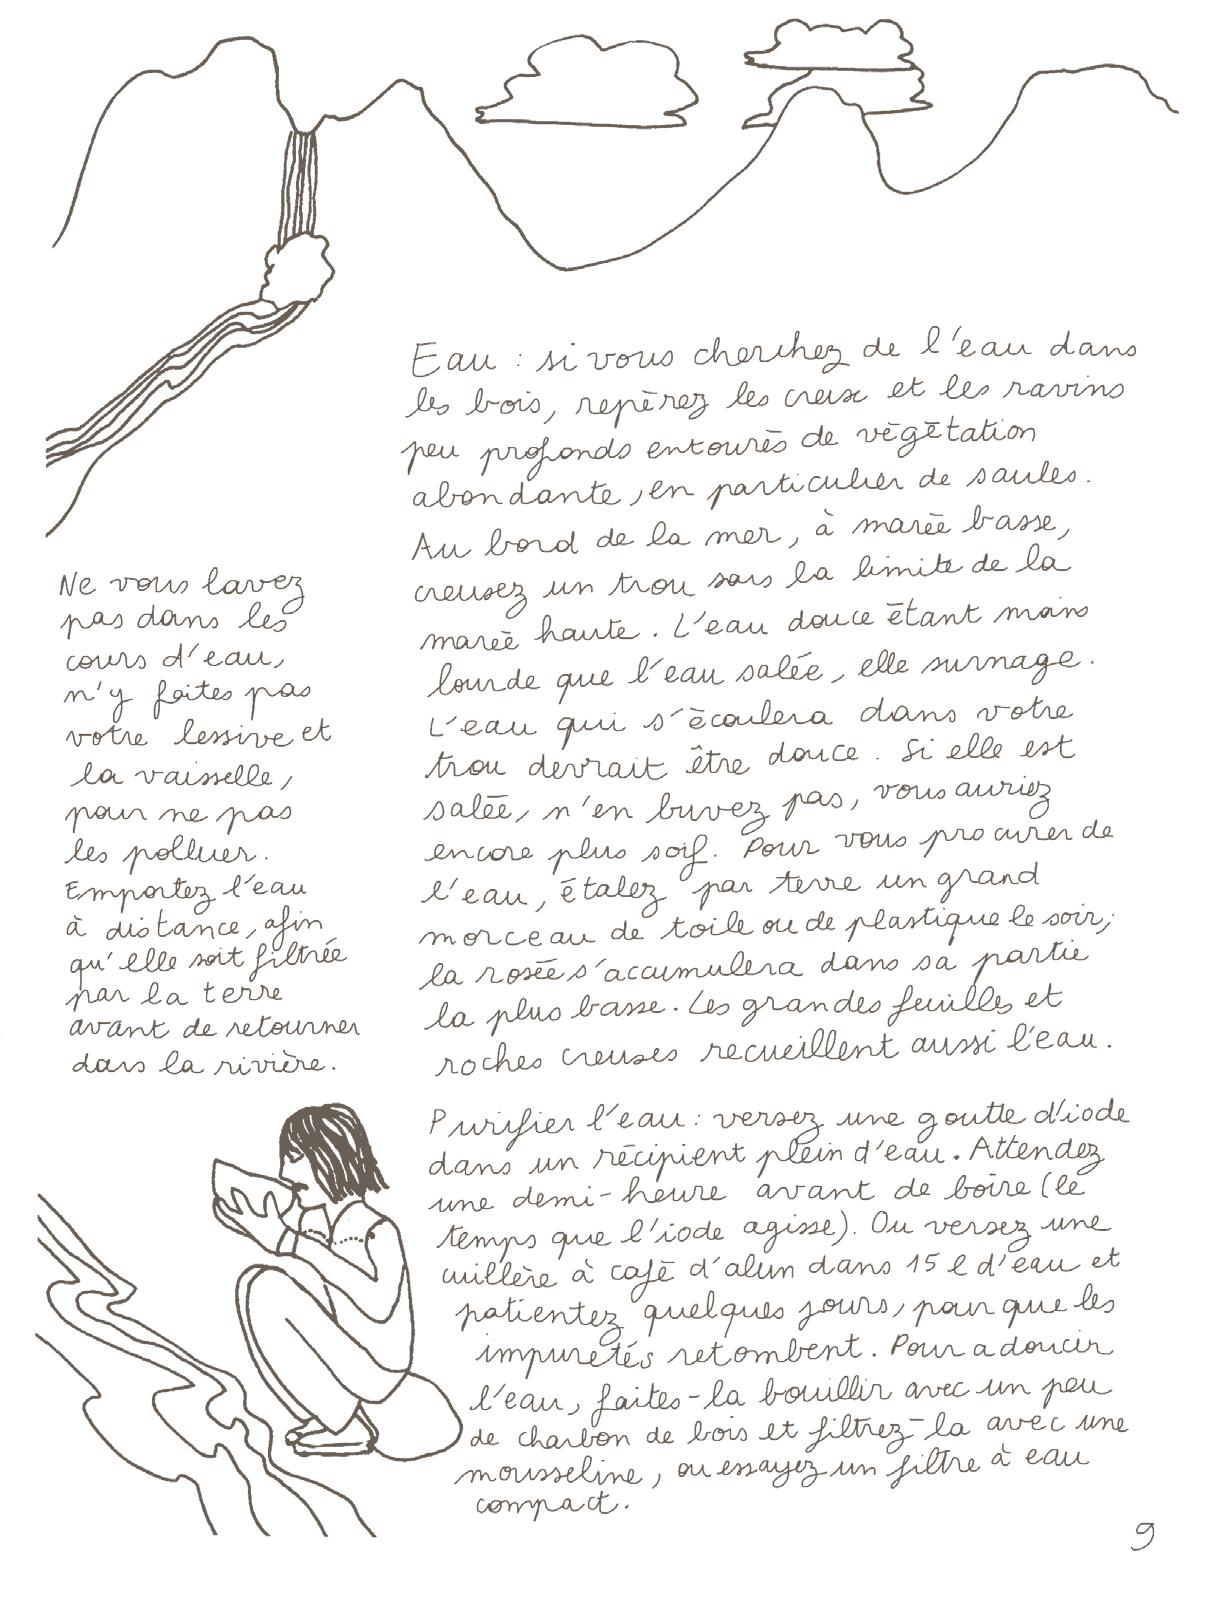 Eau : si vous cherchez de l'eau dans
les bois, repèrez les creux et les ravins
peu profonds entourés de végétation
abondante, en particulier de saules.
Au bord de la mer, à marée basse,
creusez un trou sous la limite de la
marée haute. L'eau douce étant moins
lourde que l'eau salée, elle surnage.
L'eau qui s'écoulera dans votre
trou devrait être douce. Si elle est
salée, n'en buvez pas, vous auriez
encore plus soif. Pour vous procurer de
l'eau, étalez par terre un grand
morceau de toile ou de plastique le soir,
la rosée s'accumulera dans sa partie
la plus basse. Les grandes feuilles et
roches creuses recueillent aussi l'eau.
Ne vous lavez
pas dans les
cours d'eau,
n'y faites pas
votre lessive et
la vaisselle,
pour ne pas
les polluer.
Emportez l'eau
à distance, afin
qu'elle soit filtrée
par la terre
avant de retourner
dans la rivière.
Purifier l'eau : versez une goutte d'iode
dans un récipient plein d'eau. Attendez
une demi-heure avant de boire (le
temps que l'iode agisse). Ou versez une
cuillère à café d'alun dans 15 l d'eau et
patientez quelques jours, pour que les
impuretés retombent. Pour adoucir
l'eau, faites-la bouillir avec un peu
de charbon de bois et filtrez-la avec une
mousseline, ou essayez un filtre à eau
compact.
9